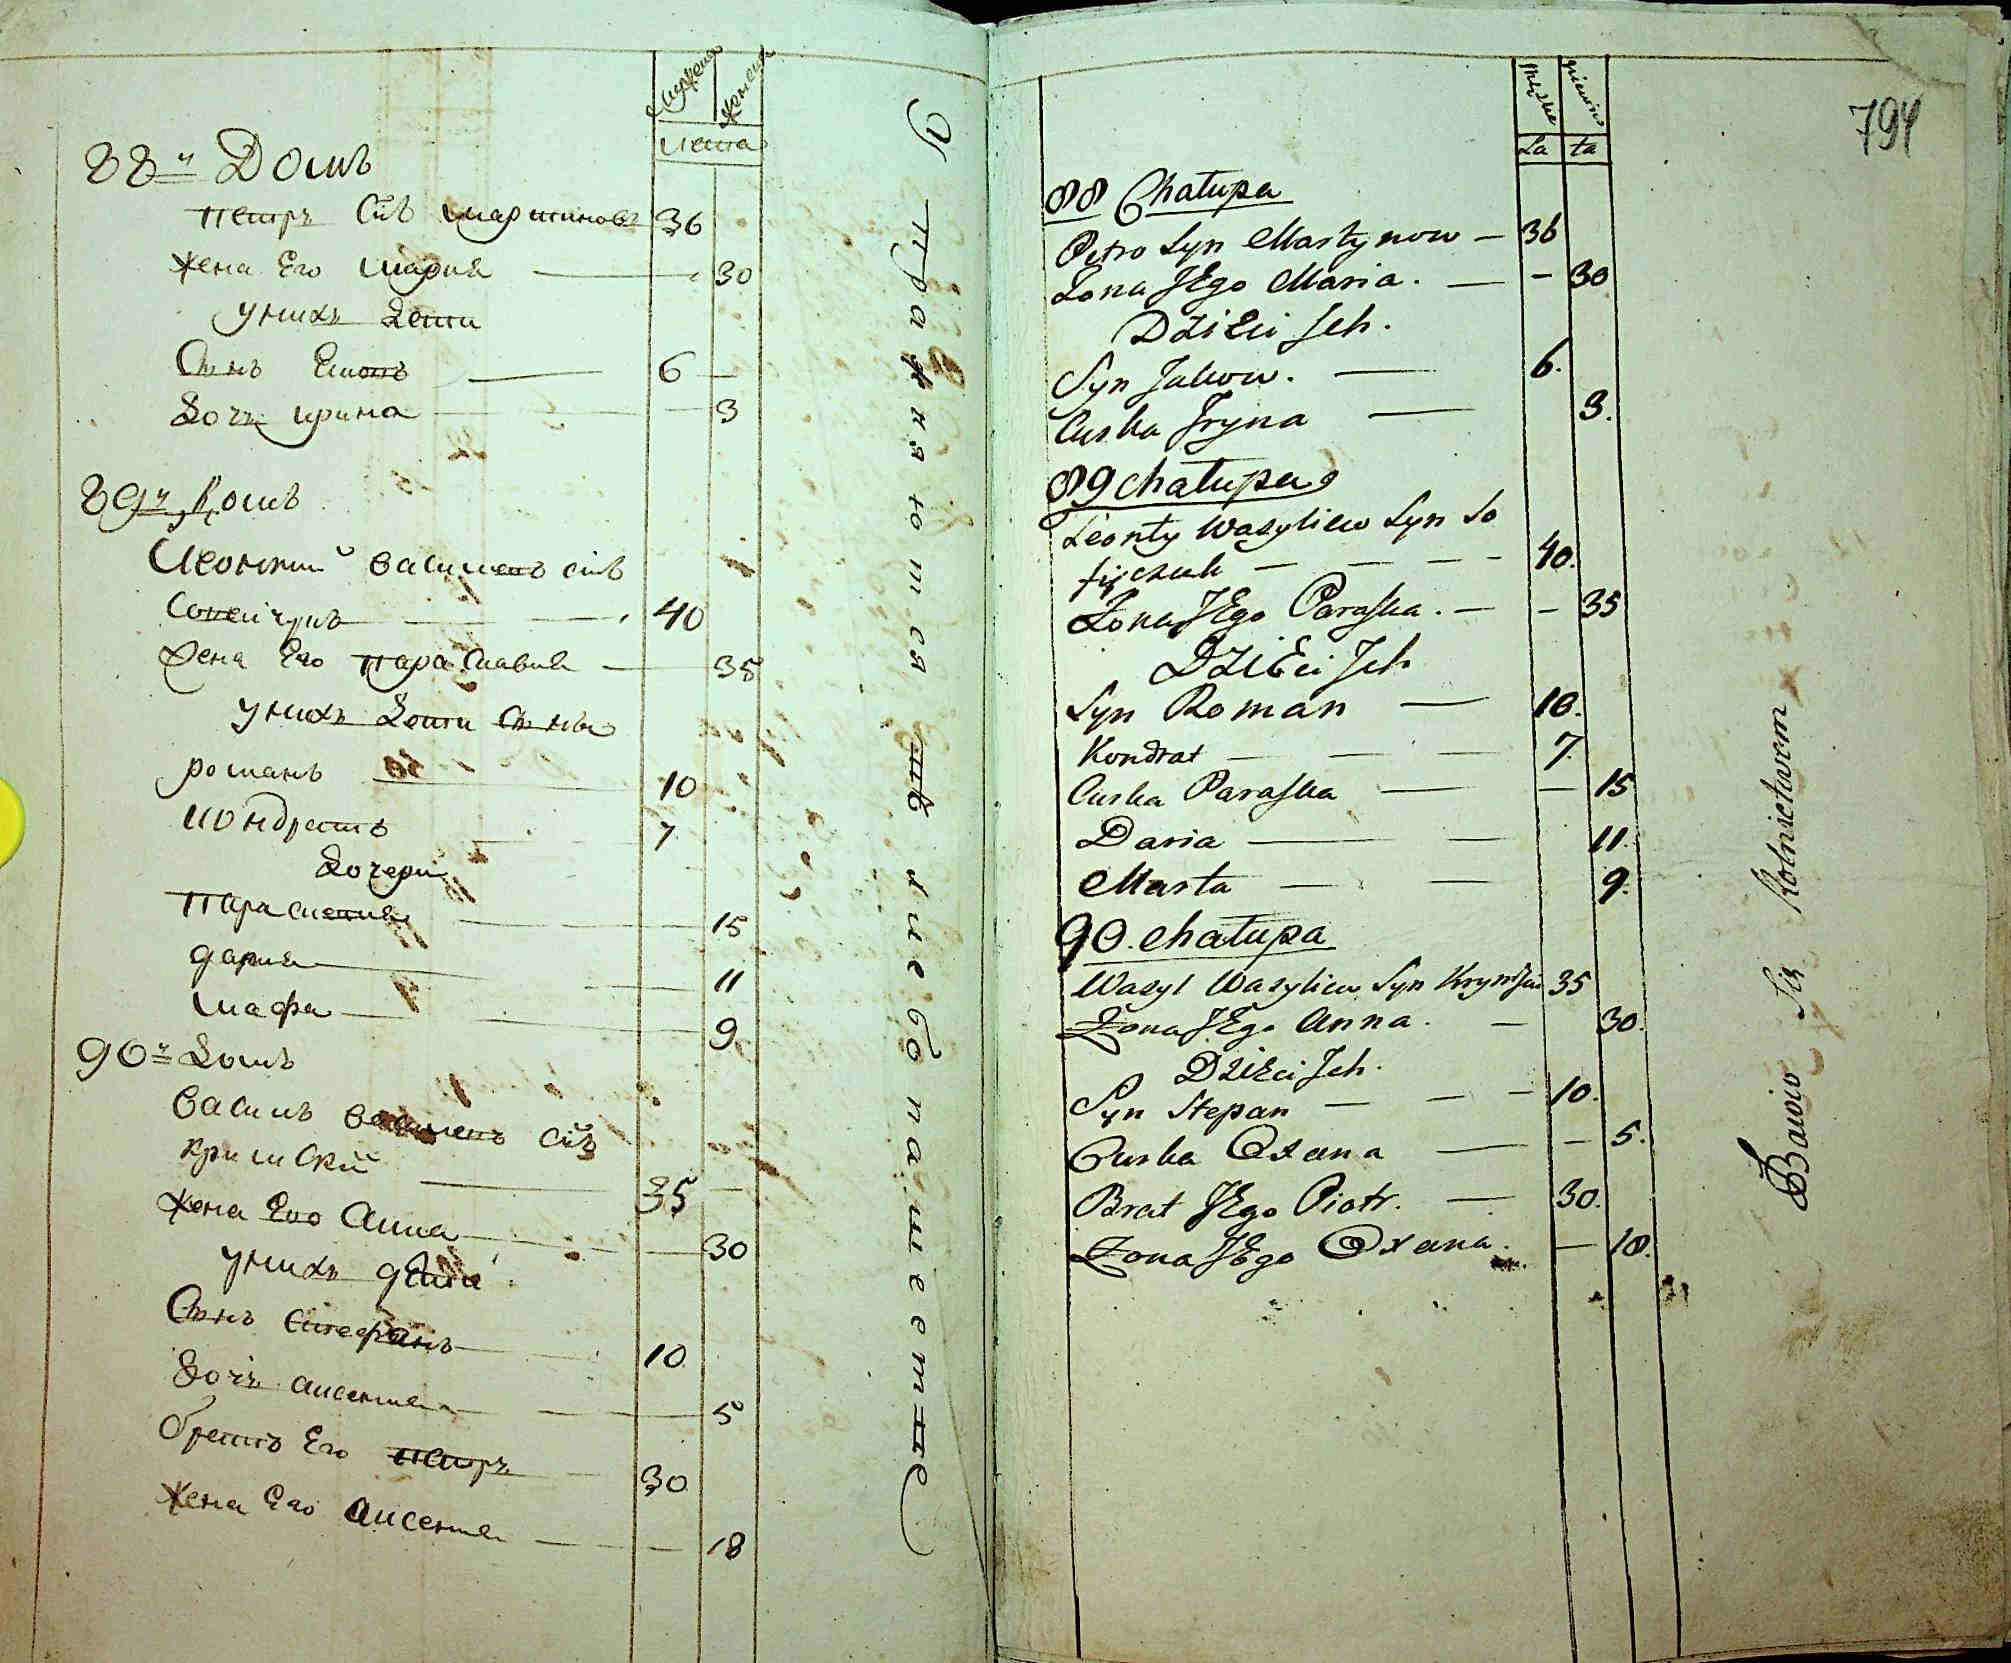 мужеска женска
лета
88й Домъ
петръ сн̃ъ мартиновъ 36
жена Его мария 30
у нихъ дети
Сынъ Екопъ 6
дочь ирина 3
89й домъ
Леонтий василевъ сн̃ъ
40
жена Его парасковия 35
у нихъ дети Сыны
романъ 10
кондратъ 7
дочери
параскевия 15
дария 11
марфа 9
90й домъ
василь василевъ сн̃ъ
кримский 35
жена Его Анна 30
у нихъ дети
Сынъ Стефанъ 10
дочь аксения 5
братъ Его петръ 30
жена Его Аксения 18
Упражняются въ хлебопашестве
794
męzkie
La ta
88 Chałupa
Petro Syn Martynow — 36
Żona JEgo Maria. — — 30
DziEci Jch.
Syn Jakow. — 6.
Curka Jryna — 3.
89 chałupa
Leonty Wasyliew Syn So
fijczuk — — — — 40.
Żona JEgo Paraska. — — 35
DziEci Jch
Syn Roman — 10.
Kondrat — — — 7.
Curka Paraska — — 15
Daria — — 11.
Marta — — 9.
90. chałupa
Wasyl Wasyliew Syn 35
Żona JEgo Anna. — 30.
DziEci Jch.
Syn Stepan — — — 10.
Curka Oxana — — 5.
Brat JEgo Piotr. — 30.
Żona JEgo Oxana. — 18.
Bawio Sie Rolnictwem